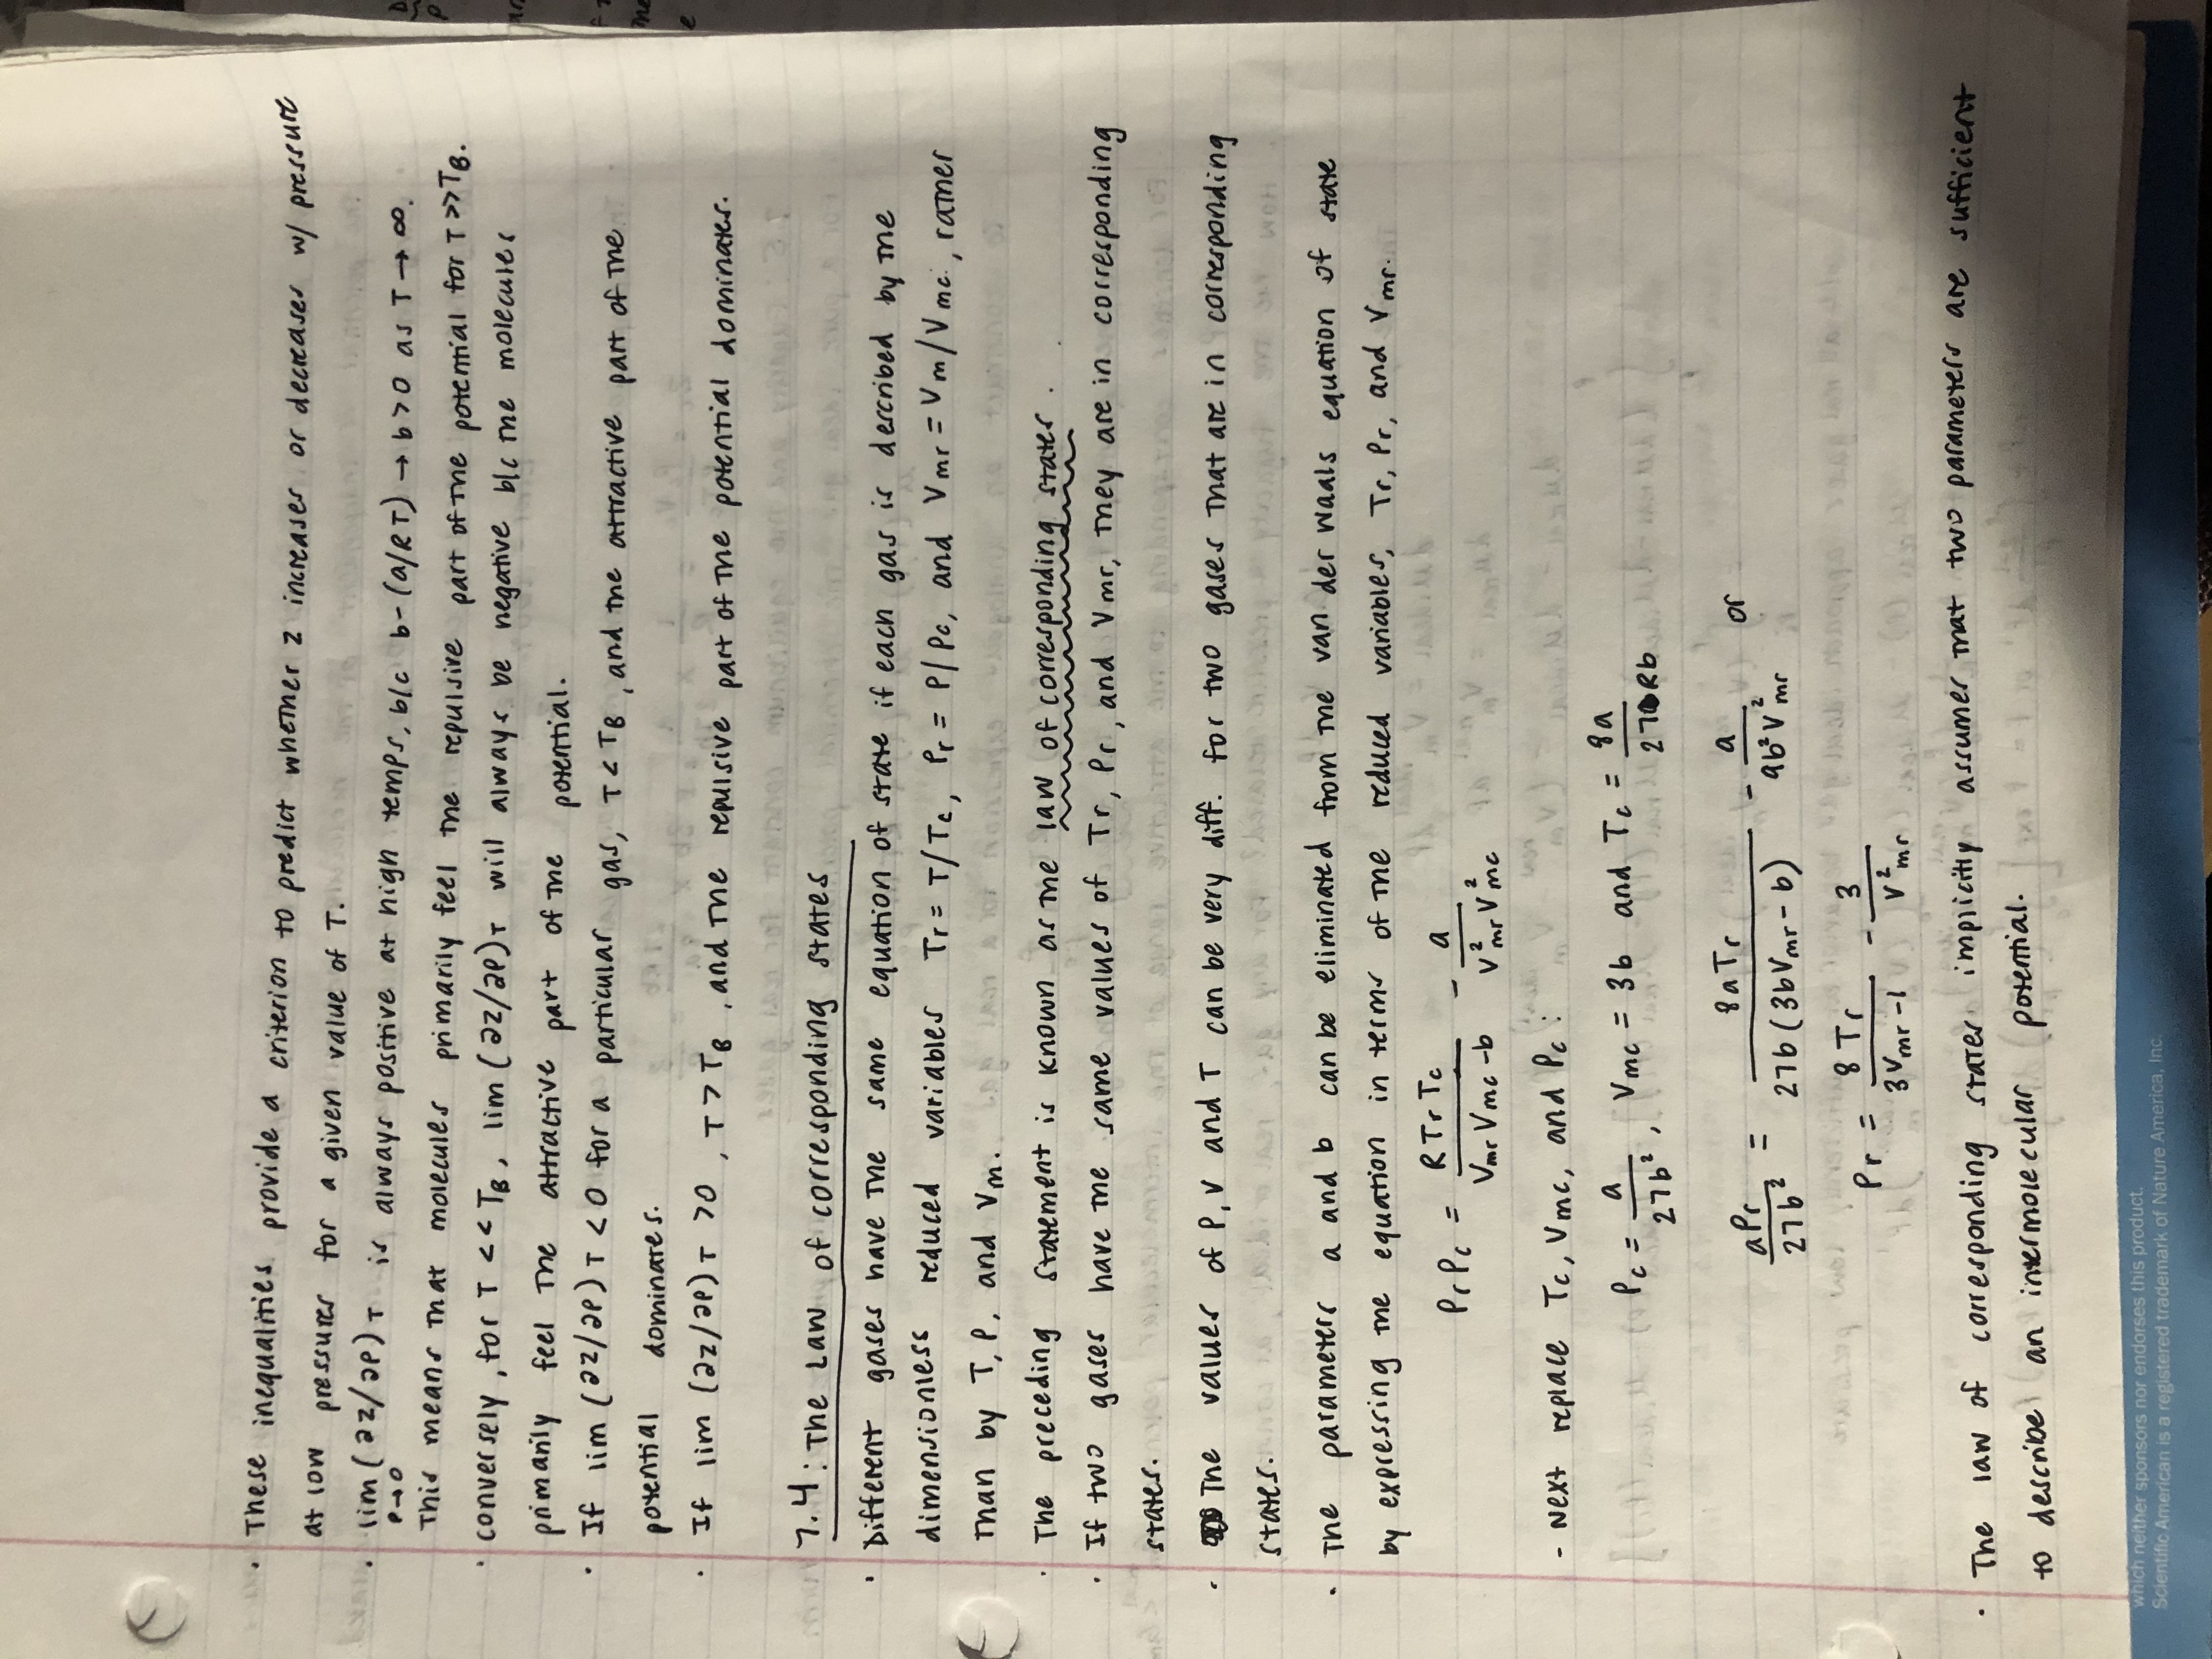 · These inequalities provide a criterion to predict whether z increases or decreases w/ pressure
at low pressures for a given value of T.
· lim (∂z/∂P)T is always positive at high temps, b/c b-(a/RT) → b>0 as T → ∞.
P→0
This means that molecules primarily feel the repulsive part of the potential for T >> TB.
· conversely, for T << TB, lim (∂z/∂P)T will always be negative b/c the molecules
primarily feel the attractive part of the potential.
· If lim (∂z/∂P)T < 0 for a particular gas, T < TB, and the attractive part of the
potential dominates.
· If lim (∂z/∂P)T > 0, T > TB, and the repulsive part of the potential dominates.
7.4: The Law of corresponding states
· Different gases have the same equation of state if each gas is described by the
dimensionless reduced variables Tr = T/Tc, Pr = P/Pc, and Vmr = Vm/Vmc, rather
than by T, P, and Vm.
· The preceding statement is known as the law of corresponding states.
· If two gases have the same values of Tr, Pr, and Vmr, they are in corresponding
states.
· The values of P, V and T can be very diff. for two gases that are in corresponding
states.
· The parameters a and b can be eliminated from the van der Waals equation of state
by expressing the equation in terms of the reduced variables, Tr, Pr, and Vmr.
PrPc = RTrTc / (VmrVmc - b) - a / (V²mrV²mc)
- Next replace Tc, Vmc, and Pc:
Pc = a / 27b², Vmc = 3b and Tc = 8a / 27Rb
aPr / 27b² = 8aTr / 27b(3bVmr - b) - a / 9b²V²mr or
Pr = 8Tr / (3Vmr - 1) - 3 / V²mr
· The law of corresponding states implicitly assumes that two parameters are sufficient
to describe an intermolecular potential.
which neither sponsors nor endorses this product.
Scientific American is a registered trademark of Nature America, Inc.